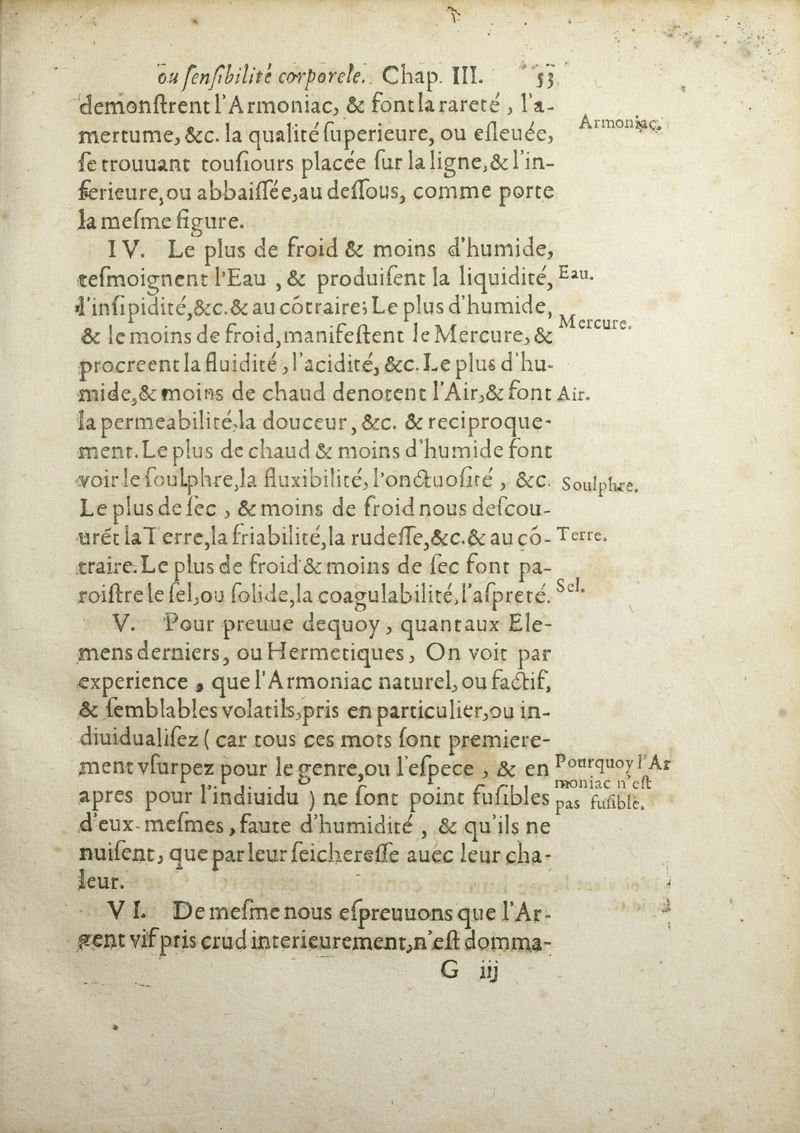 ou ſenſibilité corporele. Chap. III. 53
demonſtrent l'Armoniac, & font la rareté, l'a-
mertume, &c. la qualité ſuperieure, ou eſleuée,
Armoniac.
ſe trouuant touſiours placée ſur la ligne, & l'in-
ferieure, ou abbaiſſée, au deſſous, comme porte
la meſme figure.
IV. Le plus de froid & moins d'humide,
teſmoignent l'Eau, & produiſent la liquidité,
Eau.
l'inſipidité, &c. & au cōtraire; Le plus d'humide,
& le moins de froid, manifeſtent le Mercure, &
Mercure.
procreent la fluidité, l'acidité, &c. Le plus d'hu-
mide, & moins de chaud denotent l'Air, & font
Air.
la permeabilité, la douceur, &c. & reciproque-
ment. Le plus de chaud & moins d'humide font
voir le ſoulphre, la fluxibilité, l'onctuoſité, &c.
Soulphre.
Le plus de ſec, & moins de froid nous deſcou-
urēt la Terre, la friabilité, la rudeſſe, &c. & au cō-
Terre.
traire. Le plus de froid & moins de ſec font pa-
roiſtre le ſel, ou ſolide, la coagulabilité, l'aſpreté.
Sel.
V. Pour preuue dequoy, quant aux Ele-
mens derniers, ou Hermetiques, On voit par
experience, que l'Armoniac naturel, ou factif,
& ſemblables volatils, pris en particulier, ou in-
diuidualiſez (car tous ces mots ſont premiere-
ment vſurpez pour le genre, ou l'eſpece, & en
apres pour l'indiuidu) ne ſont point fuſibles
Pourquoy l'Ar
moniac n'eſt
pas fuſible.
d'eux-meſmes, faute d'humidité, & qu'ils ne
nuiſent, que par leur ſeichereſſe auec leur cha-
leur.
VI. De meſme nous eſpreuuons que l'Ar-
gent vif pris crud interieurement, n'eſt domma-
G iij